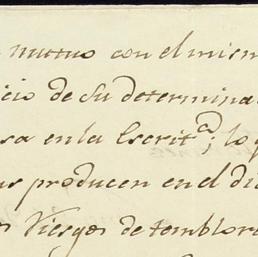 mutuo con el mism
icio de su determina
sa en la Escrit.ª; lo q
us producen en el di
Riesgos de temblor